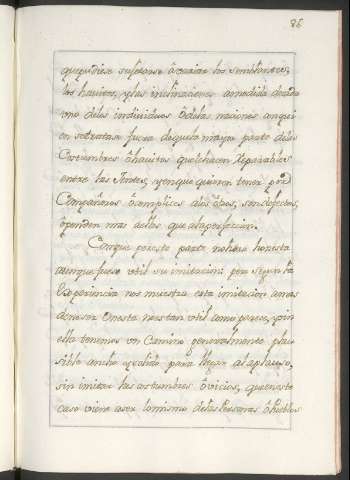 86
que pudiese sujetarse â variar los semblantes,
los havitos, y las inclinaciones a medida de cada
uno de los individuos ô de las naciones con qui
en se tratara fuera de gusto mayor parte de las
Costumbres ô havitos que le hacen reparables
entre las Jentes, y en que quieren tener por
Compañeros ô complices a los otros, son defectos,
ô penden mas de ellos que a la perfeccion.
Con que por esta parte no fuera honesta
aunque fuese util su imitacion: pero segun la
Experiencia nos muestra esta imitacion a mas
de no ser onesta no es tan util como parece, y sin
ella tenemos un Camino generalmente plau
sible ancho y solido para llegar al aplauso,
sin imitar las costumbres ô vicios, que en este
caso viene a ser lo mismo de las Personas ô Pueblos